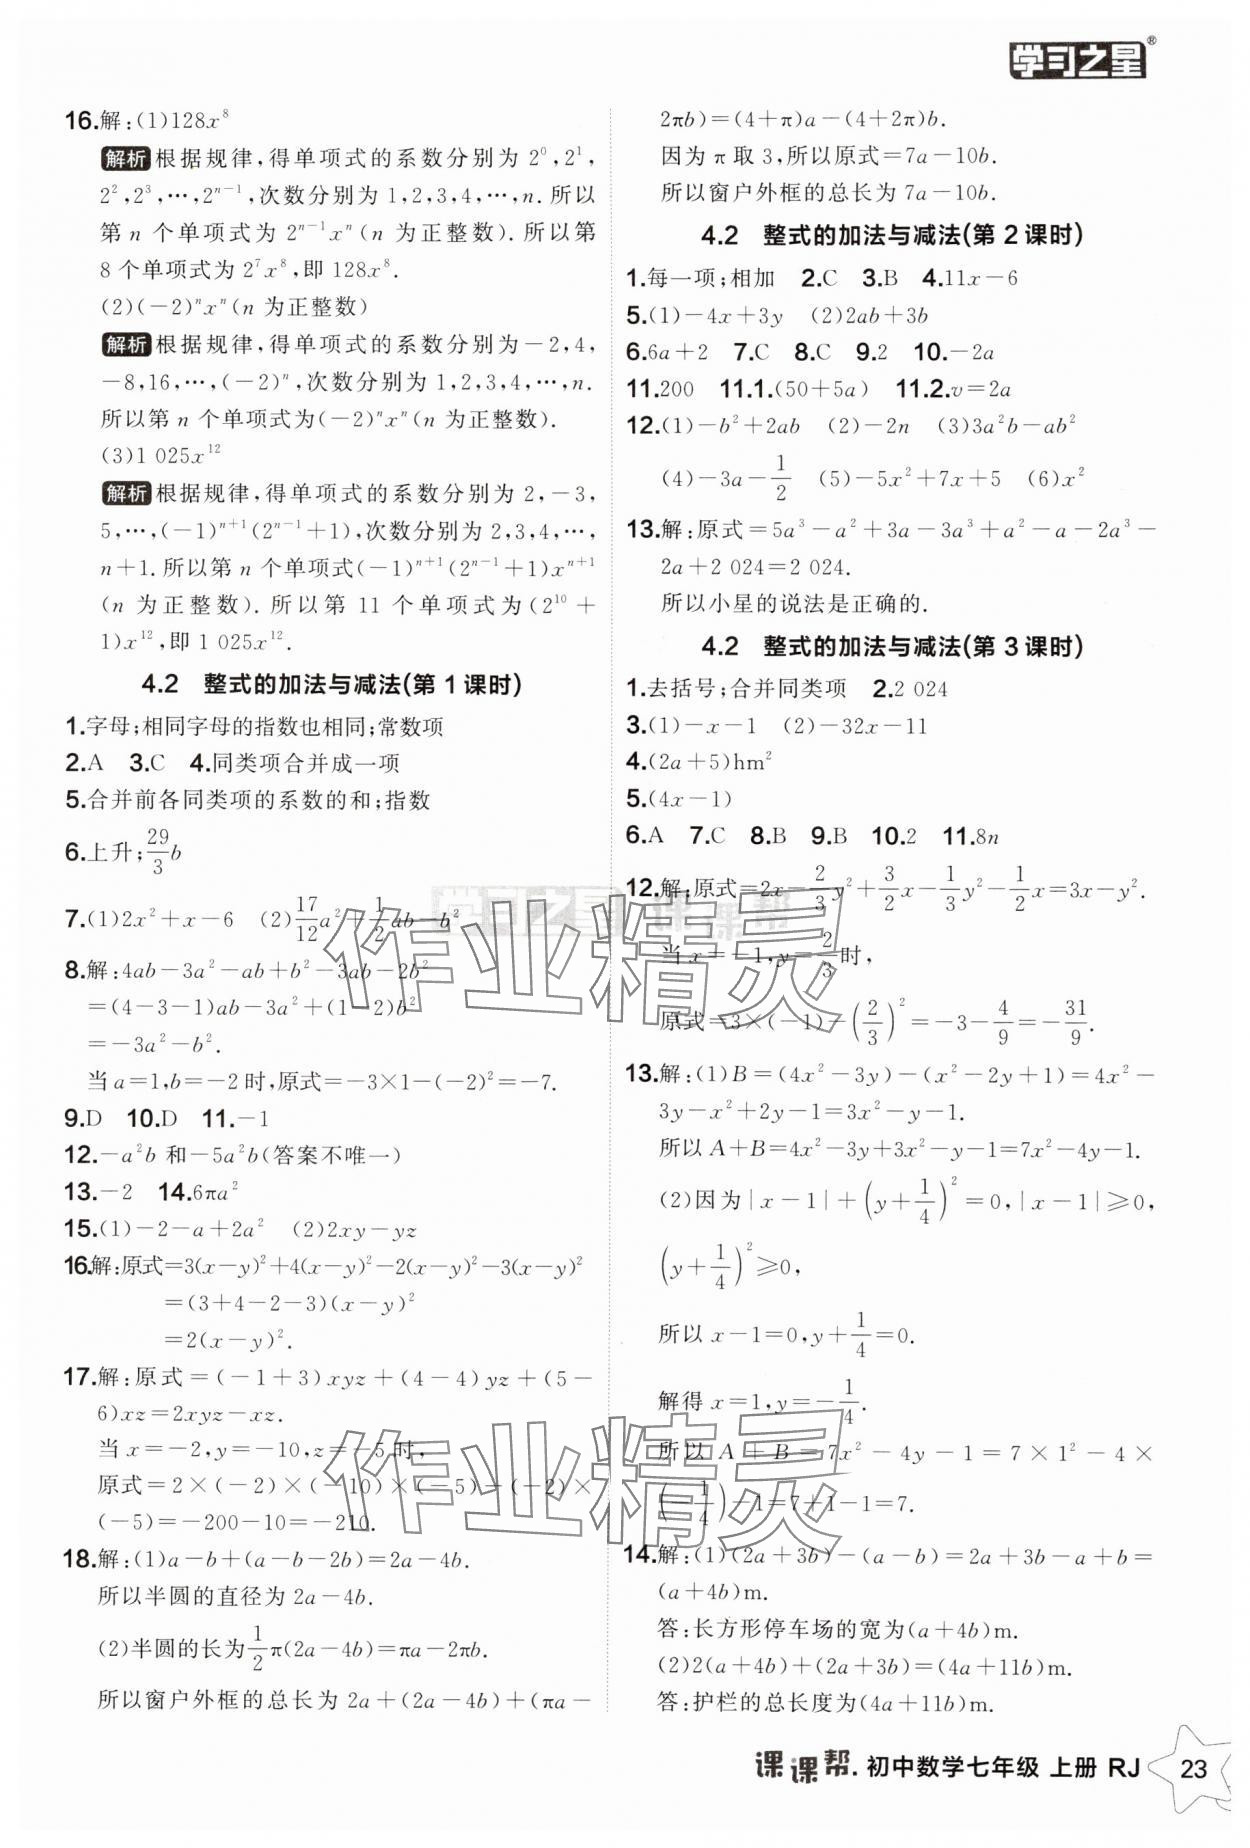 学习之星®
16.解:(1)128x⁸
解析 根据规律,得单项式的系数分别为 2⁰,2¹,
2²,2³,…,2ⁿ⁻¹,次数分别为 1,2,3,4,…,n.所以
第 n 个单项式为 2ⁿ⁻¹xⁿ(n 为正整数).所以第
8 个单项式为 2⁷x⁸,即 128x⁸.
(2)(-2)ⁿxⁿ(n 为正整数)
解析 根据规律,得单项式的系数分别为-2,4,
-8,16,…,(-2)ⁿ,次数分别为 1,2,3,4,…,n.
所以第 n 个单项式为(-2)ⁿxⁿ(n 为正整数).
(3)1 025x¹²
解析 根据规律,得单项式的系数分别为 2,-3,
5,…,(-1)ⁿ⁺¹(2ⁿ⁻¹+1),次数分别为 2,3,4,…,
n+1.所以第 n 个单项式(-1)ⁿ⁺¹(2ⁿ⁻¹+1)xⁿ⁺¹
(n 为正整数).所以第 11 个单项式为(2¹⁰+
1)x¹²,即 1 025x¹².
4.2 整式的加法与减法(第 1 课时)
1.字母;相同字母的指数也相同;常数项
2.A 3.C 4.同类项合并成一项
5.合并前各同类项的系数的和;指数
6.上升;29/3 b
7.(1)2x²+x-6 (2)17/12 a²+1/2 ab-b²
8.解:4ab-3a²-ab+b²-3ab-2b²
=(4-3-1)ab-3a²+(1-2)b²
=-3a²-b².
当 a=1,b=-2 时,原式=-3×1-(-2)²=-7.
9.D 10.D 11.-1
12.-a²b 和-5a²b(答案不唯一)
13.-2 14.6πa²
15.(1)-2-a+2a² (2)2xy-yz
16.解:原式=3(x-y)²+4(x-y)²-2(x-y)²-3(x-y)²
=(3+4-2-3)(x-y)²
=2(x-y)².
17.解:原式=(-1+3)xyz+(4-4)yz+(5-
6)xz=2xyz-xz.
当 x=-2,y=-10,z=-5 时,
原式=2×(-2)×(-10)×(-5)-(-2)×
(-5)=-200-10=-210.
18.解:(1)a-b+(a-b-2b)=2a-4b.
所以半圆的直径为 2a-4b.
(2)半圆的长为1/2 π(2a-4b)=πa-2πb.
所以窗户外框的总长为 2a+(2a-4b)+(πa-
2πb)=(4+π)a-(4+2π)b.
因为 π 取 3,所以原式=7a-10b.
所以窗户外框的总长为 7a-10b.
4.2 整式的加法与减法(第 2 课时)
1.每一项;相加 2.C 3.B 4.11x-6
5.(1)-4x+3y (2)2ab+3b
6.6a+2 7.C 8.C 9.2 10.-2a
11.200 11.1.(50+5a) 11.2.v=2a
12.(1)-b²+2ab (2)-2n (3)3a²b-ab²
(4)-3a-1/2 (5)-5x²+7x+5 (6)x²
13.解:原式=5a³-a²+3a-3a³+a²-a-2a³-
2a+2 024=2 024.
所以小星的说法是正确的.
4.2 整式的加法与减法(第 3 课时)
1.去括号;合并同类项 2.2 024
3.(1)-x-1 (2)-32x-11
4.(2a+5)hm²
5.(4x-1)
6.A 7.C 8.B 9.B 10.2 11.8n
12.解:原式=2x-2/3 y²+3/2 x-1/3 y²-1/2 x=3x-y².
当 x=-1,y=2/3时,
原式=3×(-1)-(2/3)²=-3-4/9=-31/9.
13.解:(1)B=(4x²-3y)-(x²-2y+1)=4x²-
3y-x²+2y-1=3x²-y-1.
所以 A+B=4x²-3y+3x²-y-1=7x²-4y-1.
(2)因为|x-1|+(y+1/4)²=0,|x-1|≥0,
(y+1/4)²≥0,
所以 x-1=0,y+1/4=0.
解得 x=1,y=-1/4.
所以 A+B=7x²-4y-1=7×1²-4×
(-1/4)-1=7+1-1=7.
14.解:(1)(2a+3b)-(a-b)=2a+3b-a+b=
(a+4b)m.
答:长方形停车场的宽为(a+4b)m.
(2)2(a+4b)+(2a+3b)=(4a+11b)m.
答:护栏的总长度为(4a+11b)m.
学习之星 课课帮
作业精灵
作业精灵
课课帮.初中数学七年级 上册 RJ 23